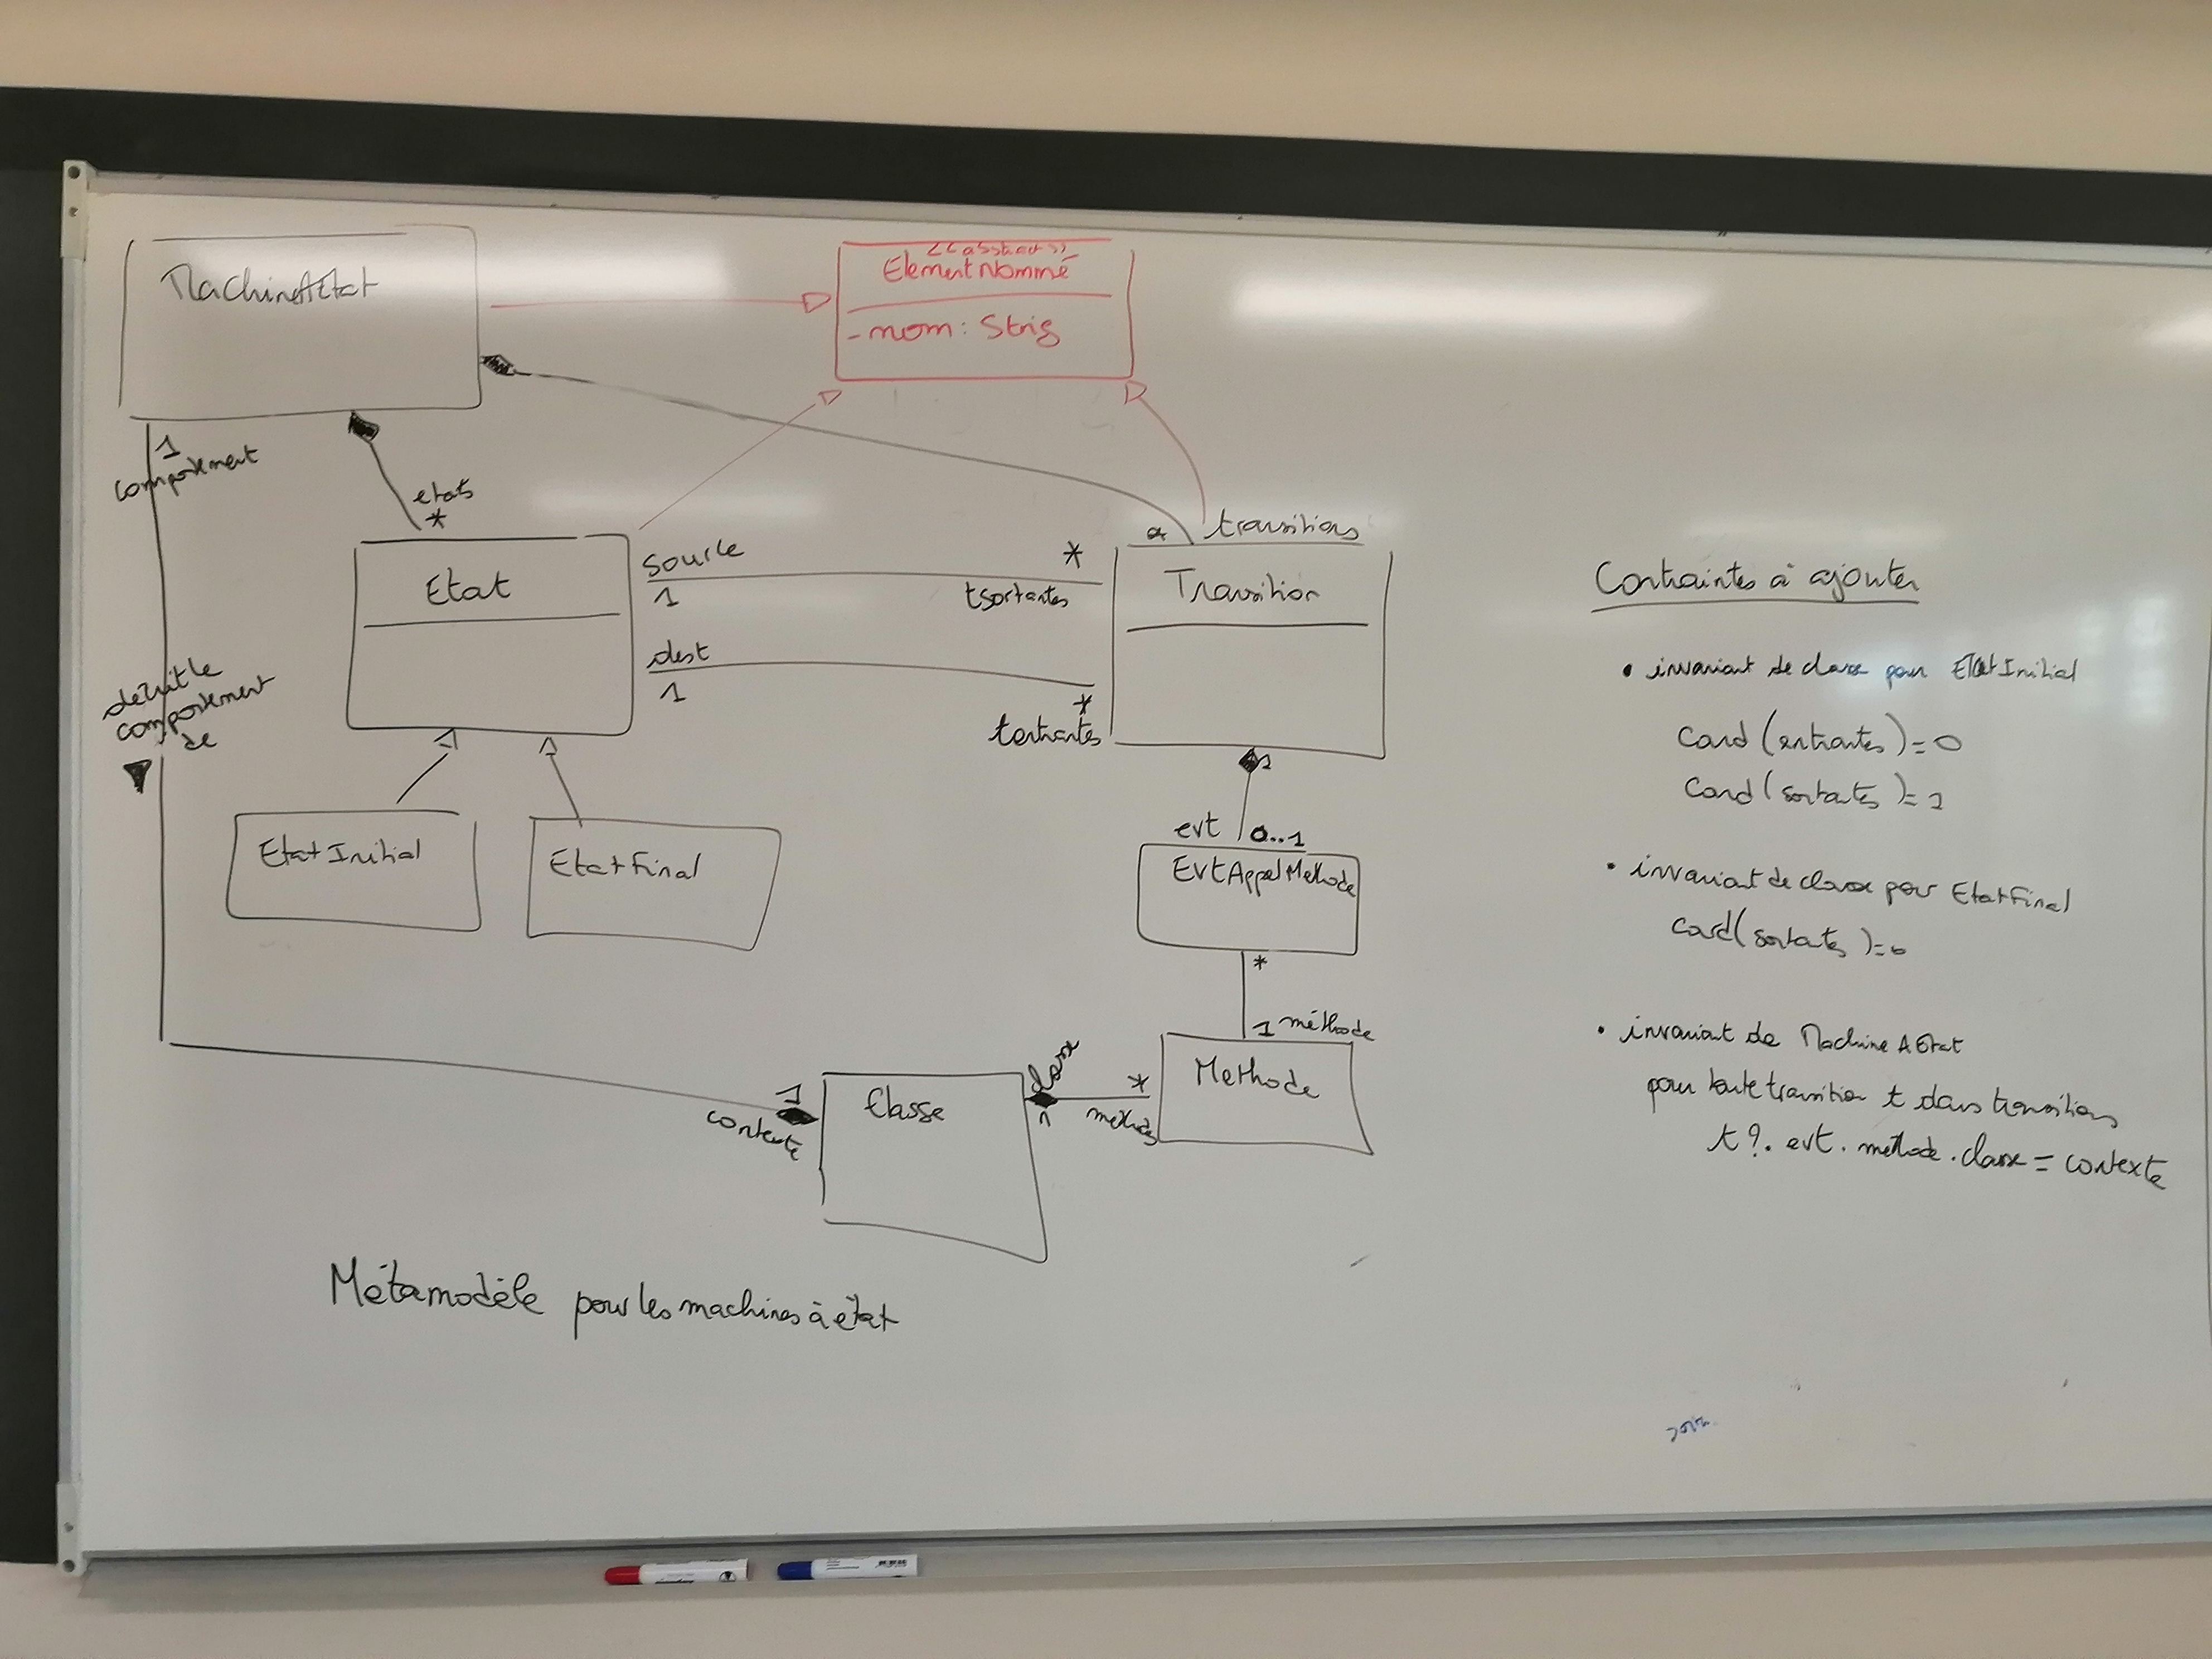 MachineAEtat
<<abstract>>
ElementNommé
- nom : Strig
1
comportement
etats
*
Etat
source
1
*
tsortantes
dest
1
*
tentrantes
* transitions
Transition
définit le
comportement
de
EtatInitial
EtatFinal
1
evt 0..1
EvtAppelMethode
*
1 méthode
Methode
1
contexte
Classe
classe
1
*
methodes
Métamodèle pour les machines à état
Contraintes à ajouter
• invariant de classe pour EtatInitial
card (entrantes) = 0
card (sortantes) = 1
• invariant de classe pour EtatFinal
card (sortantes) = 0
• invariant de MachineAEtat
pour toute transition t dans transitions
t?. evt. methode. classe = contexte